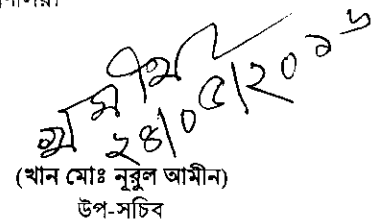 ২৪/০৫/২০১৬
(খান মোঃ নূরুল আমীন)
উপ-সচিব